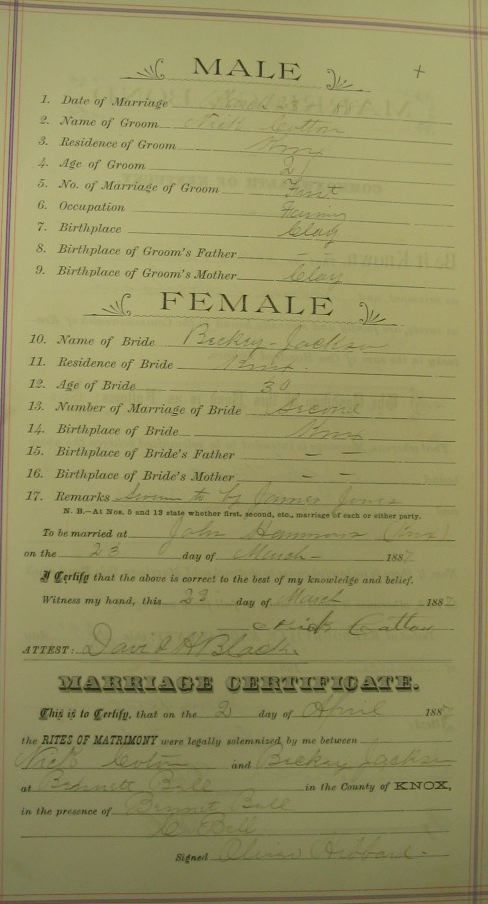 MALE
1. Date of Marriage
2. Name of Groom Nick Cotton
3. Residence of Groom Knox
4. Age of Groom 21
5. No. of Marriage of Groom First
6. Occupation Farming
7. Birthplace Clay
8. Birthplace of Groom's Father –
9. Birthplace of Groom's Mother Clay
FEMALE
10. Name of Bride Beckey Jackson
11. Residence of Bride Knox
12. Age of Bride 30
13. Number of Marriage of Bride Second
14. Birthplace of Bride Knox
15. Birthplace of Bride's Father – –
16. Birthplace of Bride's Mother – –
17. Remarks Sworn to by James Jones
N. B.—At Nos. 5 and 13 state whether first, second, etc., marriage of each or either party.
To be married at John Hammons (Knox)
on the 23 day of March 1887
I Certify that the above is correct to the best of my knowledge and belief.
Witness my hand, this 23 day of March 1887
Nick Cotton
ATTEST: David H Black
MARRIAGE CERTIFICATE.
This is to Certify, that on the 2 day of April 1887
the RITES OF MATRIMONY were legally solemnized by me between
Nick Coton and Beckey Jackson
at Bennett Ball in the County of KNOX,
in the presence of Bennet Ball
Bell
Signed Oliver Hibbard